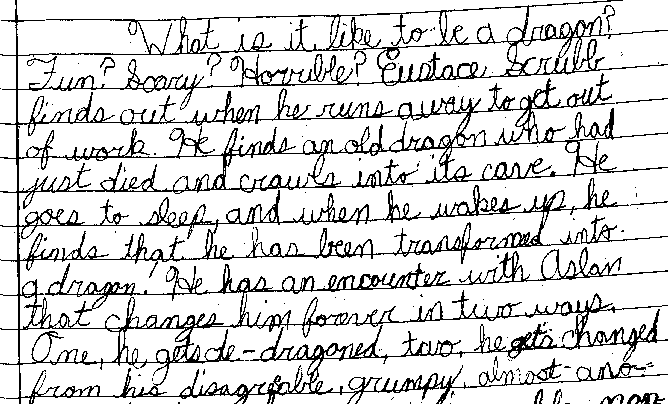 What is it like to be a dragon?
Fun? Scary? Horrible? Eustace Scrubb
finds out when he runs away to get out
of work. He finds an old dragon who had
just died and crawls into its cave. He
goes to sleep, and when he wakes up, he
finds that he has been transformed into
a dragon. He has an encounter with Aslan
that changes him forever in two ways.
One, he gets de-dragoned, two, he gets changed
from his disagreeable, grumpy, almost ano-